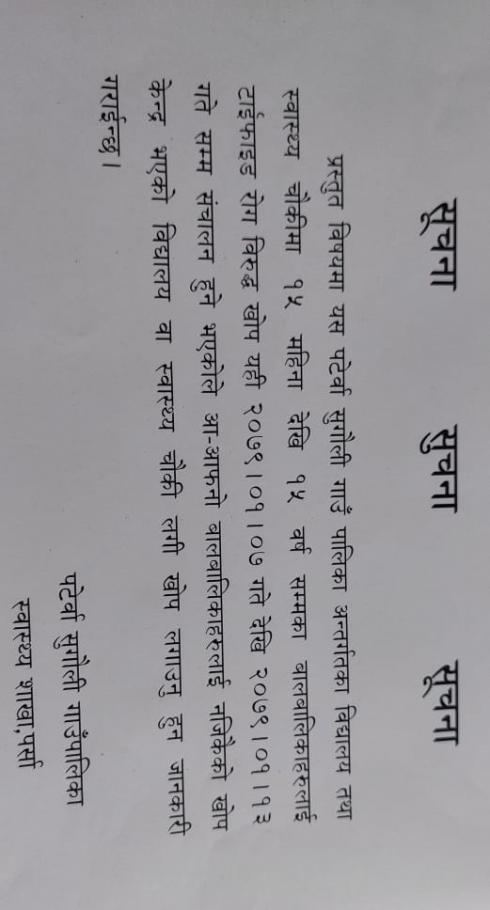 सूचना सुचना सूचना
प्रस्तुत विषयमा यस पटेर्वा सुगौली गाउँ पालिका अर्न्तगतका विद्यालय तथा
स्वास्थ्य चौकीमा १५ महिना देखि १५ वर्ष सम्मका बालबालिकाहरुलाई
टाईफाइड रोग विरुद्ध खोप यही २०७९।०१।०७ गते देखि २०७९।०१।१३
गते सम्म संचालन हुने भएकोले आ-आफनो बालबालिकाहरुलाई नजिकैको खोप
केन्द्र भएको विद्यालय वा स्वास्थ्य चौकी लगी खोप लगाउनु हुन जानकारी
गराईन्छ।
पटेर्वा सुगौली गाउँपालिका
स्वास्थ्य शाखा,पर्सा